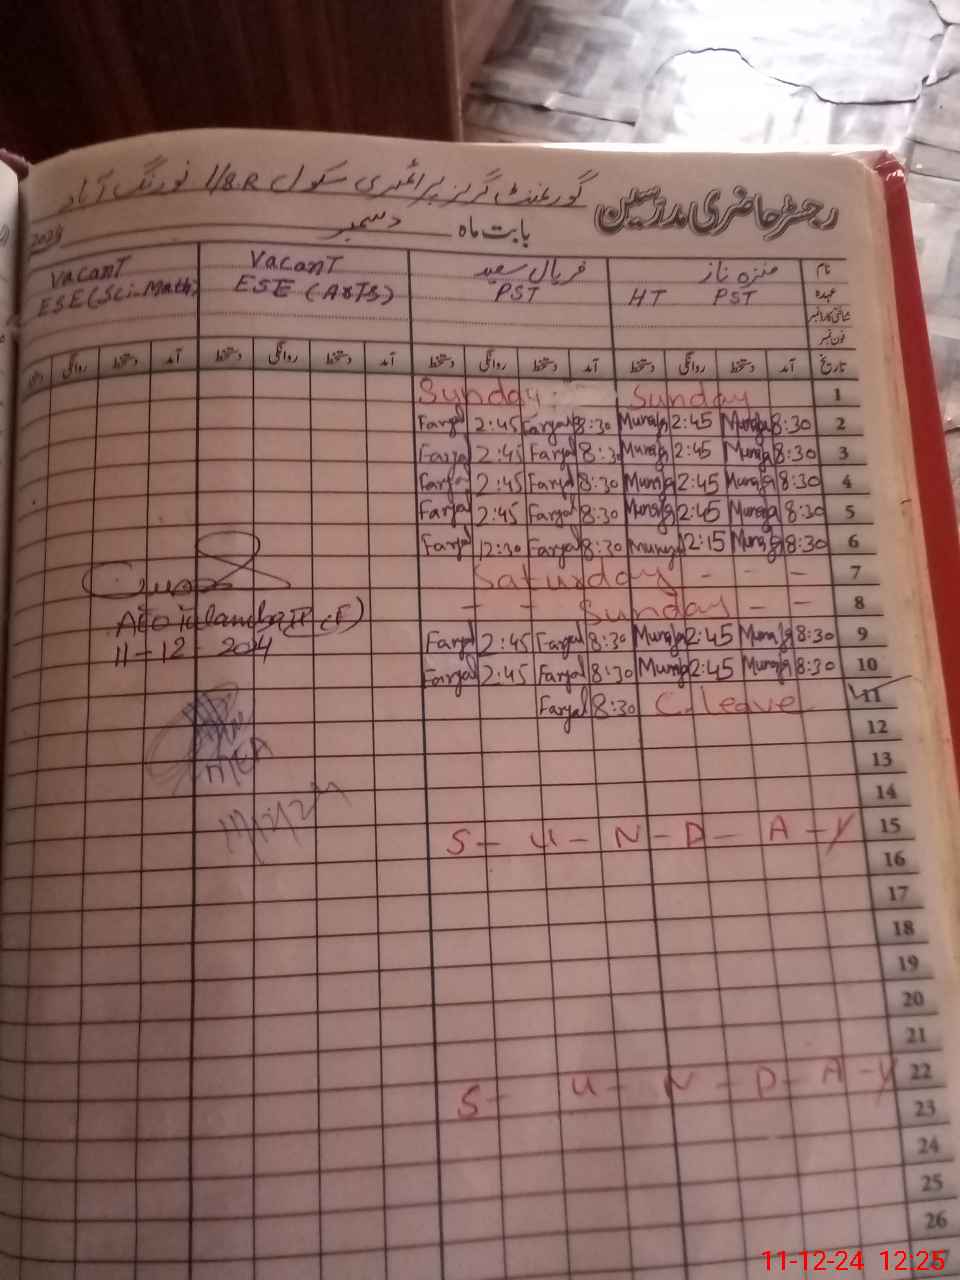 رجسٹر حاضری مدرسین گورنمنٹ گرلز پرائمری سکول 1/8.R نورنگ آباد
بابت ماہ دسمبر 2024
نام منزہ ناز فریال سعید Vacant Vacant
عہدہ PST HT PST ESE (Arts) ESE (Sci-Math)
شناختی کارڈ نمبر
فون نمبر
تاریخ آمد دستخط روانگی دستخط آمد دستخط روانگی دستخط آمد دستخط روانگی دستخط آمد دستخط روانگی دستخط
1 Sunday Sunday
2 8:30 2:45 8:30 Faryal 2:45 Faryal
3 8:30 2:45 8:30 Faryal 2:45 Faryal
4 8:30 2:45 8:30 Faryal 2:45 Faryal
5 8:30 2:45 8:30 Faryal 2:45 Faryal
6 8:30 12:15 8:30 Faryal 12:30 Faryal
7 Saturday - - -
8 - - Sunday - -
9 8:30 2:45 8:30 Faryal 2:45 Faryal
10 8:30 2:45 8:30 Faryal 2:45 Faryal
11 C.leave 8:30 Faryal
11-12-2024
MEA
12
13
14
15 S - U - N - D - A - Y
16
17
18
19
20
21
22 S - U - N - D - A - Y
23
24
25
26
11-12-24 12:25